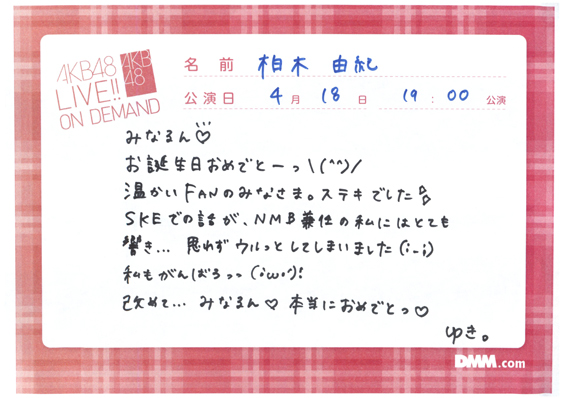 AKB48
LIVE!!
ON DEMAND
AKB
48
名前 柏木 由紀
公演日 4月 18日 19:00 公演
みなるん♡
お誕生日おめでとーっ\(^^)/
温かいFANのみなさま。ステキでした
SKEでの話が、NMB兼任の私にはとても
響き… 思わずウルっとしてしまいました(;_;)
私もがんばろっっ(;ω;)!
改めて… みなるん♡ 本当におめでとっ♡
ゆき。
DMM.com